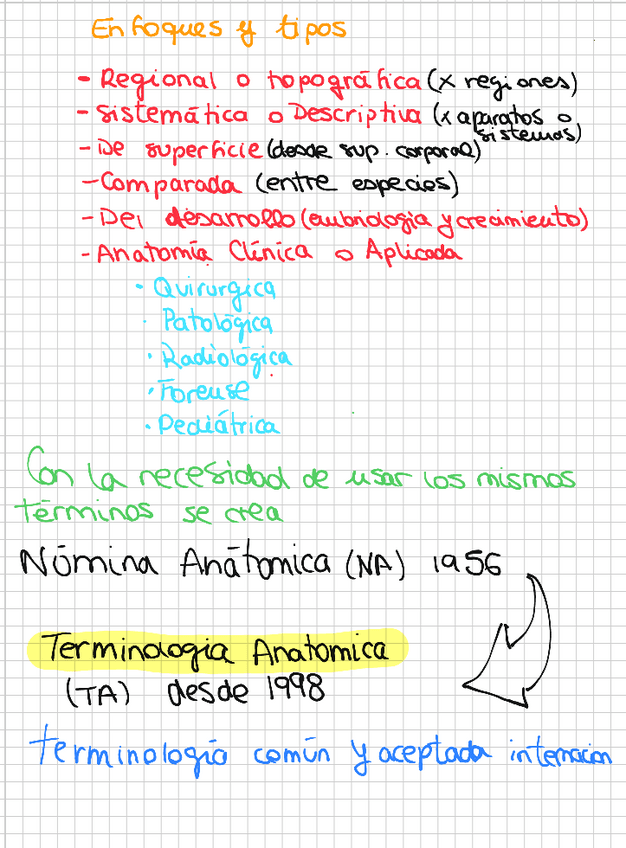 Enfoques y tipos
- Regional o topográfica (x regiones)
- Sistemática o Descriptiva (x aparatos o sistemas)
- De superficie (desde sup. corporal)
- Comparada (entre especies)
- Del desarrollo (embriologia y crecimiento)
- Anatomía Clínica o Aplicada
· Quirurgica
· Patológica
· Radiológica
· Forense
· Pediátrica
Con la necesidad de usar los mismos
términos se crea
Nómina Anátomica (NA) 1956
Terminologia Anatomica
(TA) desde 1998
terminología común y aceptada internacion